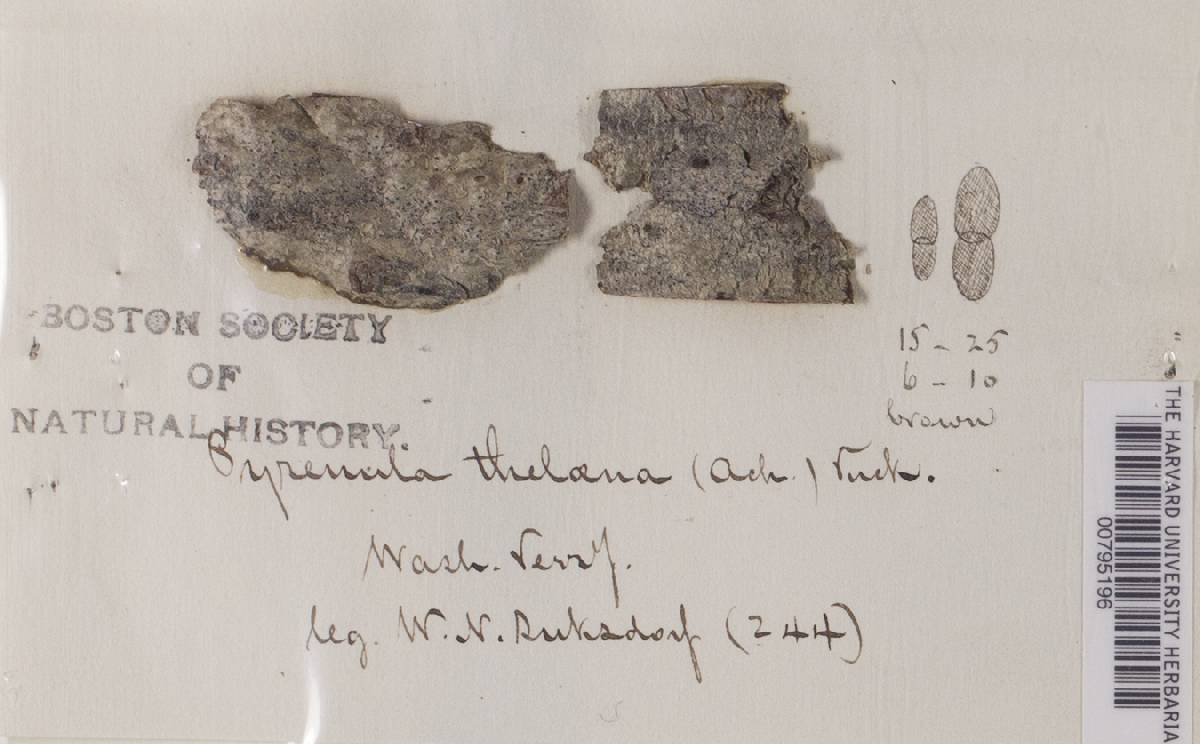 15 - 25
6 - 10
brown
BOSTON SOCIETY
OF
NATURAL HISTORY.
Pyrenula thelæna (Ach.) Tuck.
Wash. Terr'y.
leg. W. N. Suksdorf (244)
THE HARVARD UNIVERSITY HERBARIA
00795196